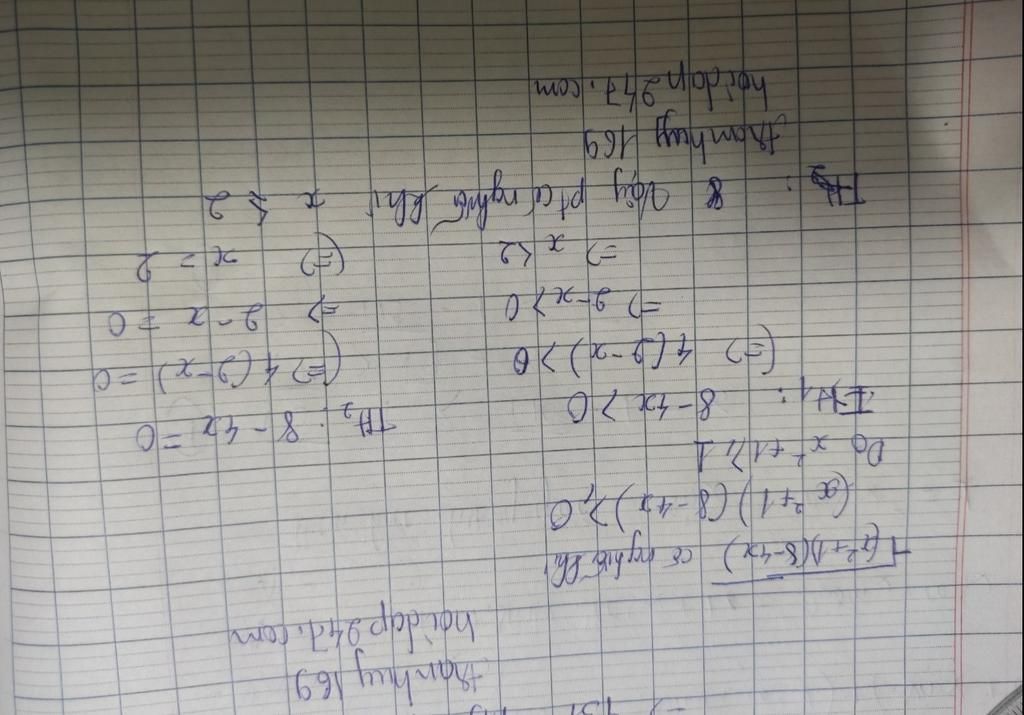 tranhuy 169
hoidap247.com
√(x²+1)(8-4x) có nghiã khi
(x²+1)(8-4x) ≥ 0
Do x²+1 ≥ 1
TH1: 8-4x > 0 TH2: 8-4x = 0
(=> 4(2-x) > 0 (=> 4(2-x) = 0
=> 2-x > 0 => 2-x = 0
=> x < 2 (=> x = 2
Vậy pt có nghiã khi x ≤ 2
tranhuy 169
hoidap247.com